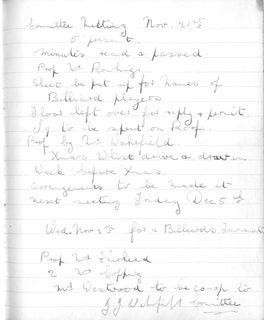 Committee Meeting Nov. 21st
5 present
Minutes read & passed
Prop Mr Rowlings
Sheet be put up for names of
Billiard players
Floor left over for reply & permit.
to be spent on Roof.
Prop by Mr Wakefield.
Xmas Whist drive & draw in
Week before Xmas.
arrangements to be made at
next meeting Friday Dec 5th
Wed. Nov for a Billiards
Prop Mr
2 Mr
Mr Westwood to be co-op to
Committee